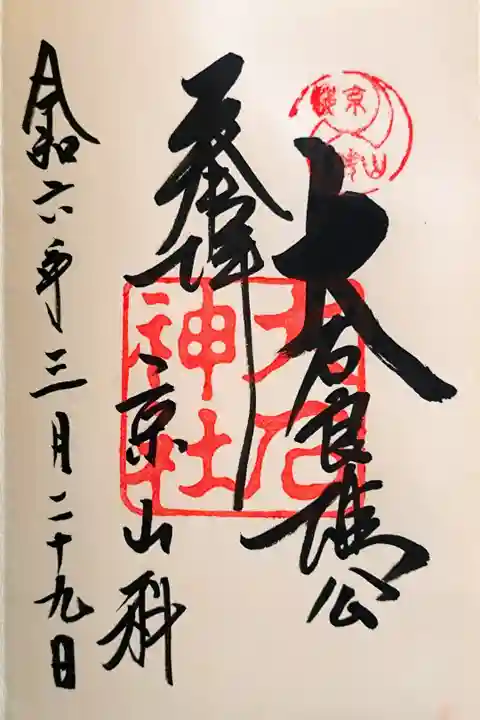 大石良雄公
奉拝
京山科
令和六年三月二十九日
大石
神社
京
山